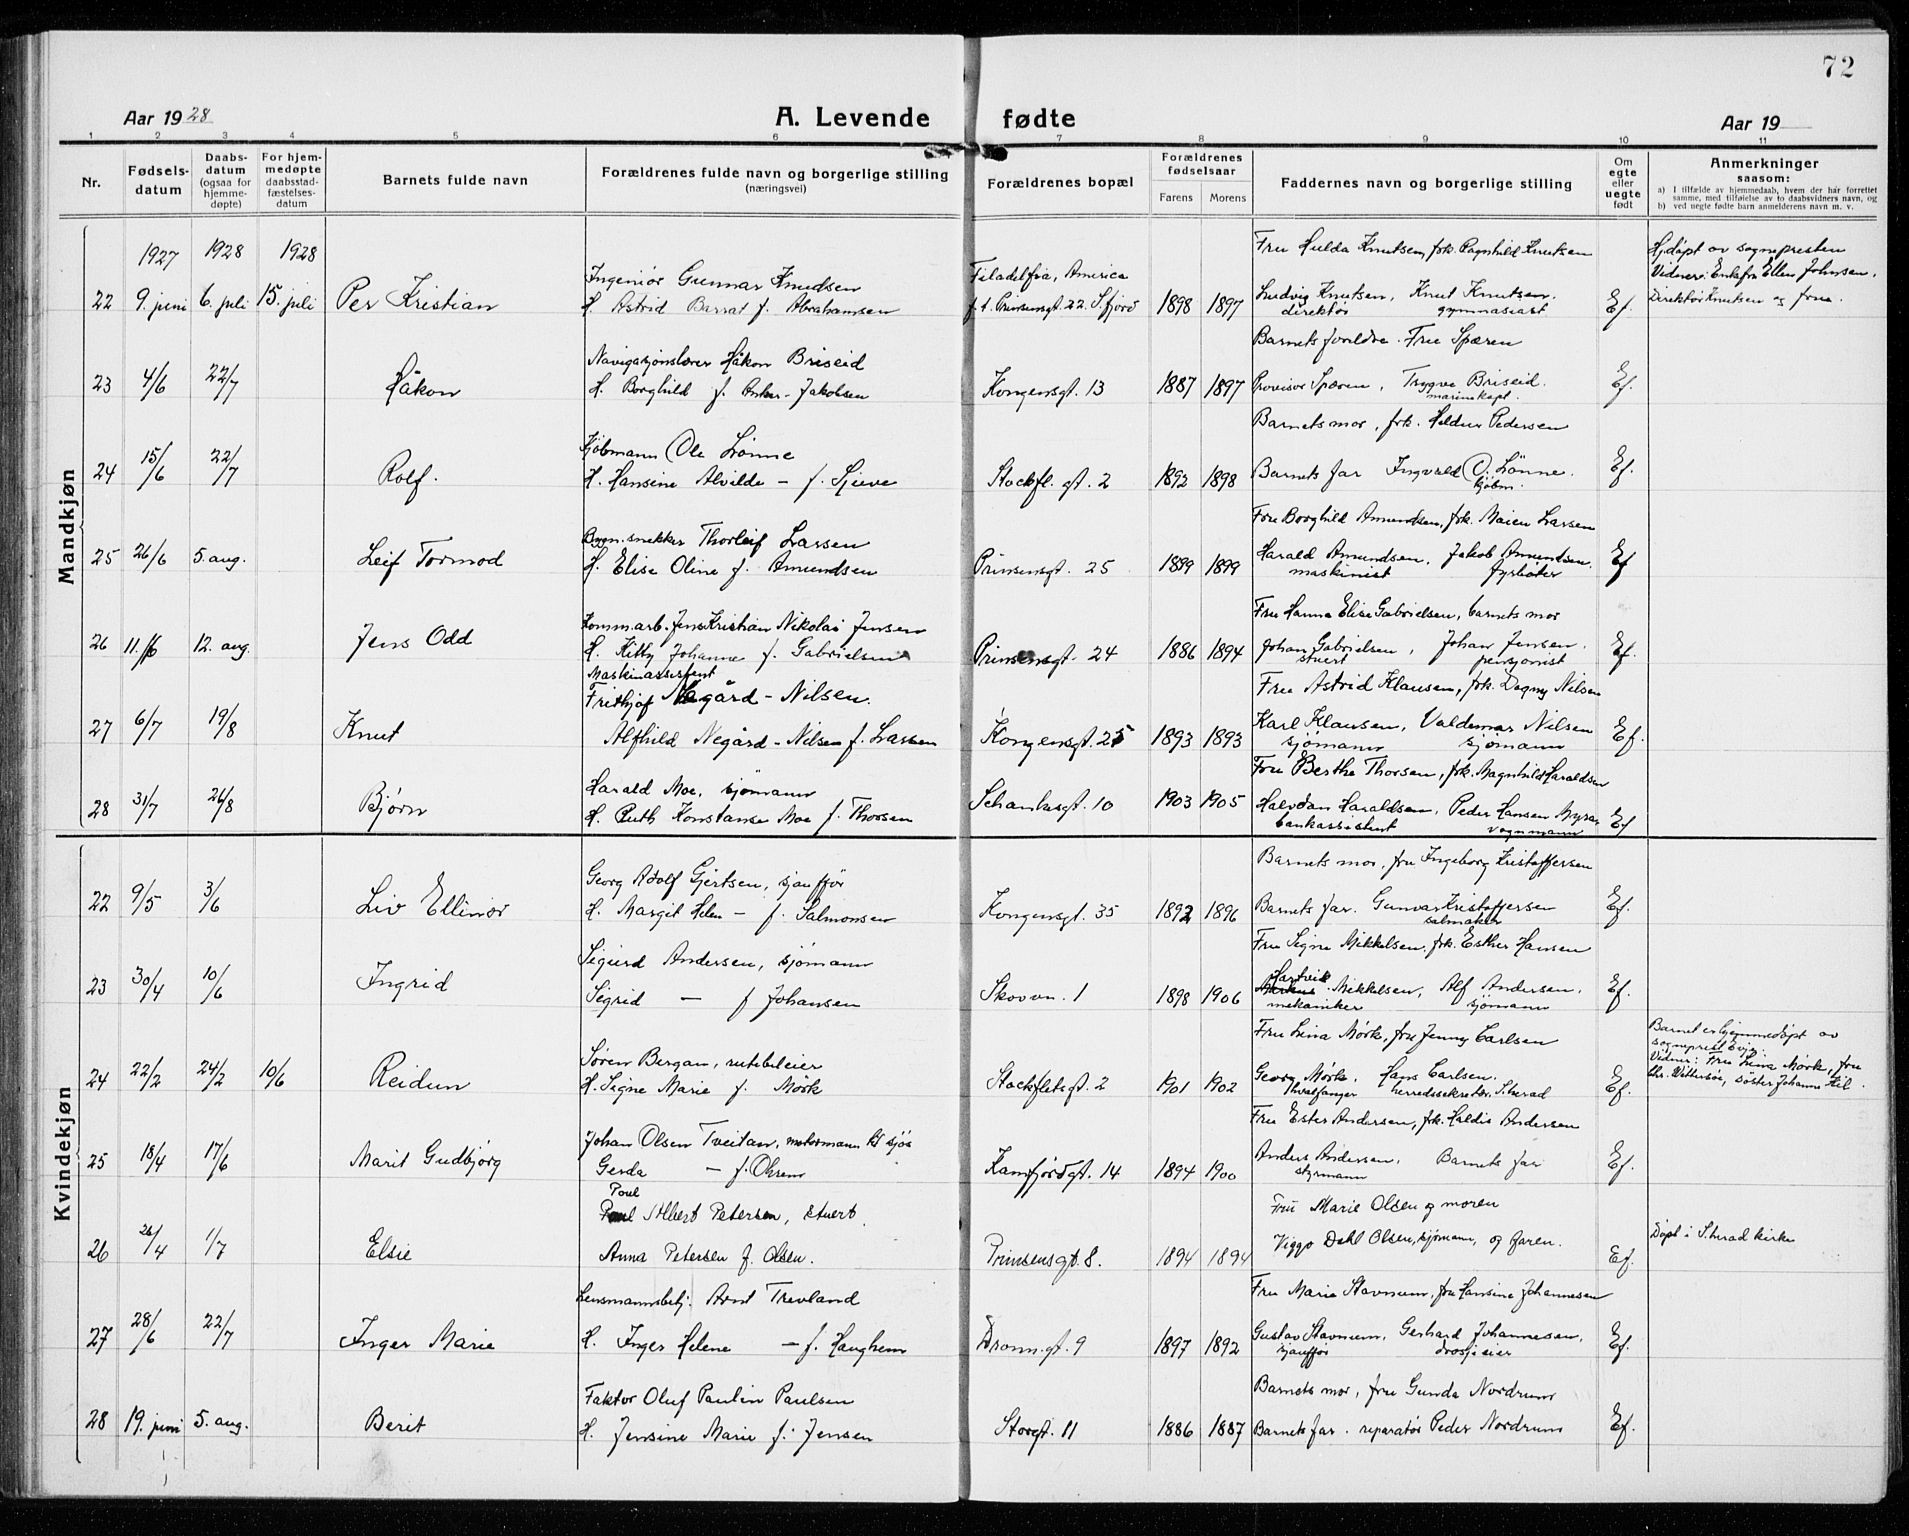 72
Aar 1928 A. Levende fødte Aar 19
1 2 3 4 5 6 7 8 9 10 11
Nr.
Fødsels-
datum
Daabs-
datum
(ogsaa for
hjemme-
døpte)
For hjem-
medøpte
daabsstad-
fæstelses-
datum
Barnets fulde navn
Forældrenes fulde navn og borgerlige stilling
(næringsvei)
Forældrenes bopæl
Forældrenes
fødselsaar
Farens Morens
Faddernes navn og borgerlige stilling
Om
egte
eller
uegte
født
Anmerkninger
saasom:
a) I tilfælde av hjemmedaab, hvem der har forrettet
samme, med tilføielse av to daabsvidners navn, og
b) ved uegte fødte barn anmelderens navn m. v.
Mandkjøn
1927 1928 1928
Fru Hulda Knutsen, frk. Ragnhild Knutsen
Hjdøpt av sognepresten
Ingeniør Gunnar Knudsen
Filadelfia, America
Vidner: Enkefru Ellen Johnsen,
22 9. juni 6. juli 15. juli Per Kristian H. Astrid Barrat f. Abrahamsen f. t. Prinsensgt. 22. S.fjord 1898 1897 Ludvig Knutsen, Knut Knutsen. Ef. Direktør Knutsen og frue.
direktør gymnasiast
Navigasjonslærer Håkon Briseid
Barnets foreldre. Fru Spæren
23 4/6 22/7 Håkon H. Borghild f. Anker-Jakobsen Kongensgt. 13 1887 1897 Provisor Spæren, Trygve Briseid. Ef.
marinekapt.
Kjøbmann Ole Lønne
Barnets mor, frk. Heldur Pedersen
24 15/6 22/7 Rolf. H. Hansine Alvilde — f. Sjuve Stockfl. gt. 2 1892 1898 Barnets far Ingvald O. Lønne. Ef.
kjøbm.
Bygn.snekker Thorleif Larssen
Fru Borghild Amundsen, frk. Maien Larssen
25 26/6 5. aug. Leif Tormod H. Elise Oline f. Amundsen Prinsensgt. 25 1899 1899 Harald Amundsen, Jakob Amundsen. Ef
maskinist fyrbøter
Kommarb. Jens Kristian Nikolai Jensen
Fru Hanna Elise Gabrielsen, barnets mor
26 11./6 12. aug. Jens Odd H. Kitty Johanne f. Gabrielsen Prinsensgt. 24 1886 1894 Johan Gabrielsen, Johan Jensen. Ef.
stuert pensjonist
Maskinassistent
Frithjof Negård-Nilsen.
Fru Astrid Klausen, frk. Dagny Nilsen
27 6/7 19/8 Knut Alfhild Negård-Nilsen f. Larssen Kongensgt. 25 1893 1893 Karl Klausen, Valdemar Nilsen Ef.
sjømann sjømann
Harald Moe, sjømann
Fru Berthe Thorsen, frk. Magnhild Haraldsen
28 31/7 26/8 Bjørn H. Ruth Konstanse Moe f. Thorsen Schankesgt. 10 1903 1905 Halvdan Haraldsen, Peder Hansen Myra, Ef
bankassistent vognmann
Kvindekjøn
Georg Adolf Gjertsen, sjauffør
Barnets mor, fru Ingeborg Kristoffersen
22 9/5 3/6 Liv Ellinor H. Margit Helen — f. Salmonsen Kongensgt. 35 1892 1896 Barnets far. Gunvar Kristoffersen Ef.
salmaker
Sigurd Andersen, sjømann
Fru Signe Mikkelsen, frk. Esther Hansen
23 30/4 10/6 Ingrid Sigrid — f Johansen Skovvn. 1 1898 1906 Hartvik Mikkelsen, Alf Andersen. Ef.
mekaniker sjømann
Søren Bergan, rutebileier
Fru Lina Mørk, fru Jenny Carlsen
Barnet er hjemmedøpt av
sogneprest Evje.
Vidner: Fru Lina Mørk, fru
24 22/2 24/2 10/6 Reidun H. Signe Marie f. Mørk Stockfletsgt. 2 1901 1902 Georg Mørk. Hans Carlsen. Ef. Chr. Wittersøe, søster Johanne Eil.
hvalfanger herredssekretær S.herad
Johan Olsen Tveitan, motormann til sjøs
Fru Ester Andersen, frk. Haldis Andersen
25 18/4 17/6 Marit Gudbjørg Gerda — f. Ohrem Kamfjordgt. 14 1894 1900 Anders Andersen. Barnets far Ef.
styrmann
Poul
Albert Petersen, stuert.
Fru Marie Olsen og moren
26 26/4 1/7 Elsie Anna Petersen f. Olsen. Prinsensgt. 8. 1894 1894 Viggo Dahl Olsen, sjømann, og faren. Ef. Døpt i S.herad kirke
Lensmannsbetj. Arnt Trevland
Fru Marie Stavnum, fru Hansine Johannesen
27 28/6 22/7 Inger Marie H. Inger Helene — f. Haughem Dronn.gt. 9 1897 1892 Gustav Stavnum, Gerhard Johannesen. Ef.
sjauffør drosjeeier
Faktor Oluf Paulin Paulsen
Barnets mor, fru Gunda Nordrum
28 19. juni 5. aug. Berit H. Jensine Marie f. Jensen Storgt. 11 1886 1887 Barnets far. reparatør Peder Nordrum Ef.